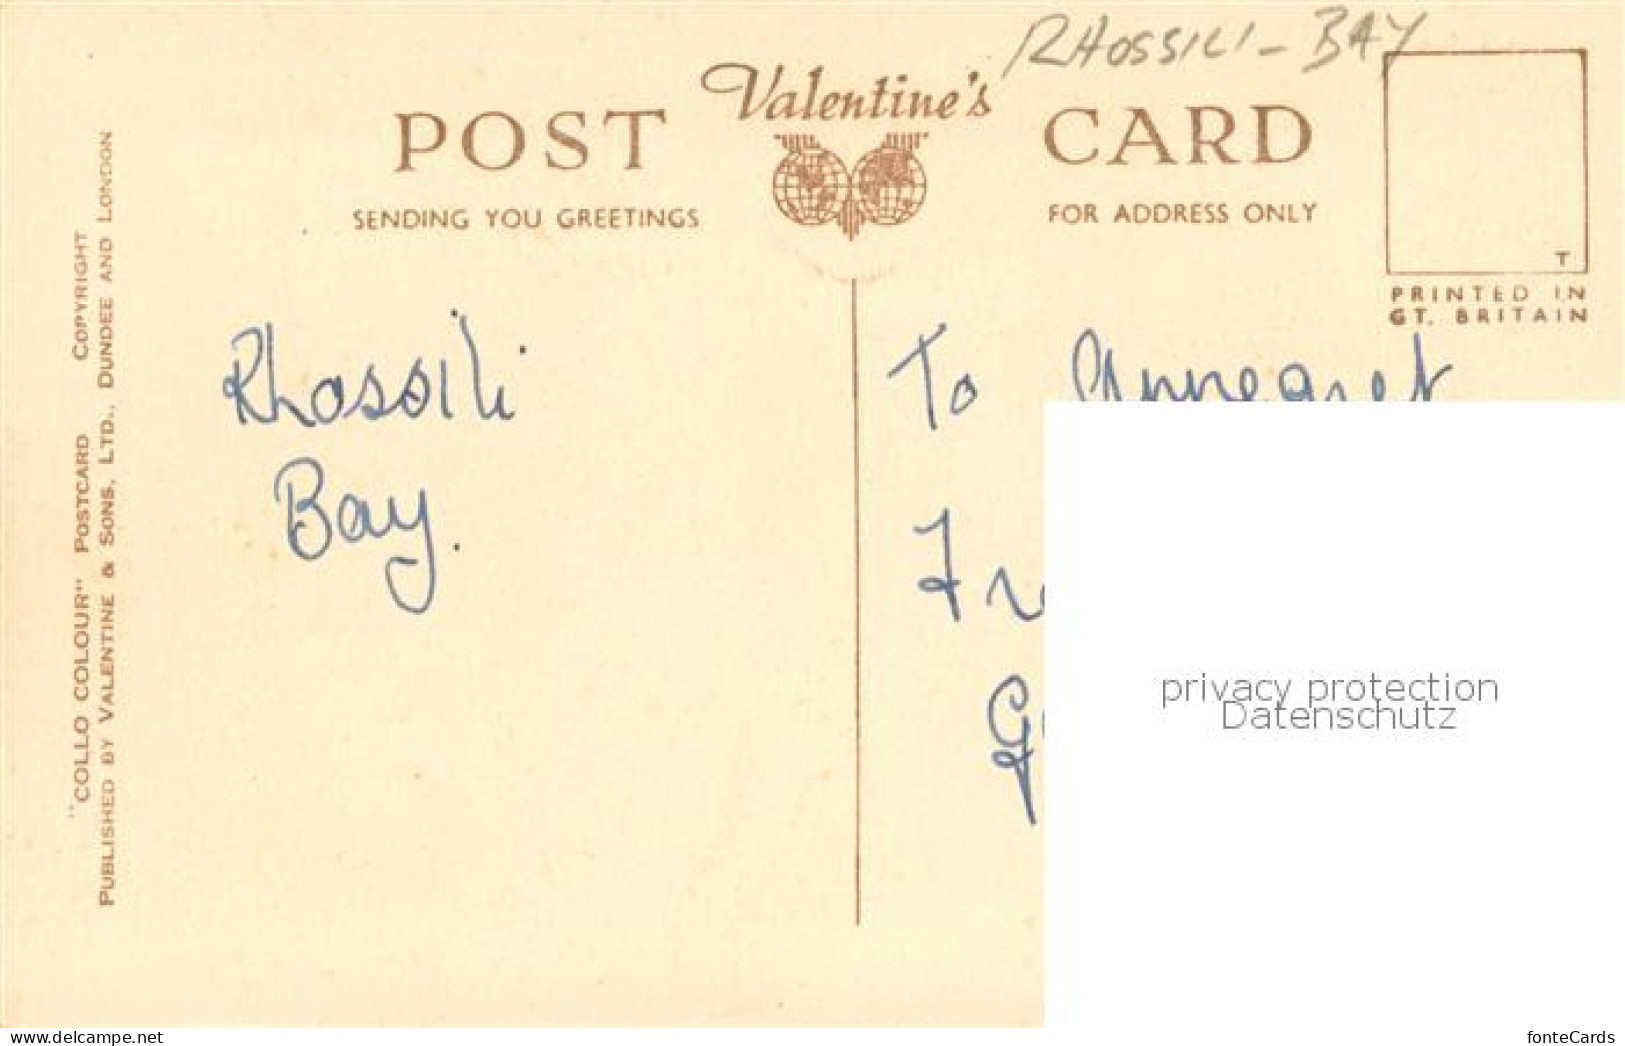 RHOSSILI - BAY
Valentine's
POST CARD
SENDING YOU GREETINGS
FOR ADDRESS ONLY
T
PRINTED IN
GT. BRITAIN
"COLLO COLOUR" POSTCARD COPYRIGHT
PUBLISHED BY VALENTINE & SONS, LTD., DUNDEE AND LONDON
Rhossili
Bay.
To Annegret
privacy protection
Datenschutz
www.delcampe.net
fonteCards